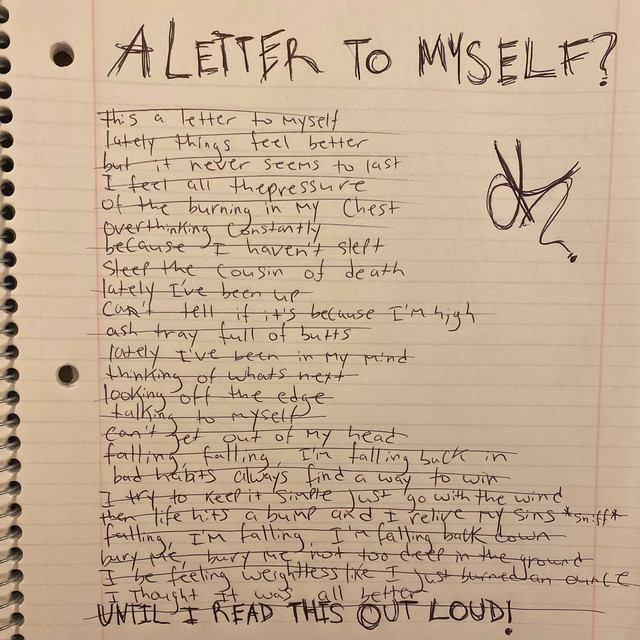 A LETTER TO MYSELF?
this a letter to myself
lately things feel better
but it never seems to last
I feel all the pressure
of the burning in my chest
overthinking constantly
because I haven't slept
sleep the cousin of death
lately I've been up
can't tell if it's because I'm high
ash tray full of butts
lately I've been in my mind
thinking of whats next
looking off the edge
talking to myself
can't get out of my head
falling, falling, I'm falling back in
bad habits always find a way to win
I try to keep it simple just go with the wind
then life hits a bump and I relive my sins *sniff*
falling, I'm falling, I'm falling back down
bury me, bury me, not too deep in the ground
I be feeling weightless like I just burned an ounce
I thought it was all better
UNTIL I READ THIS OUT LOUD!